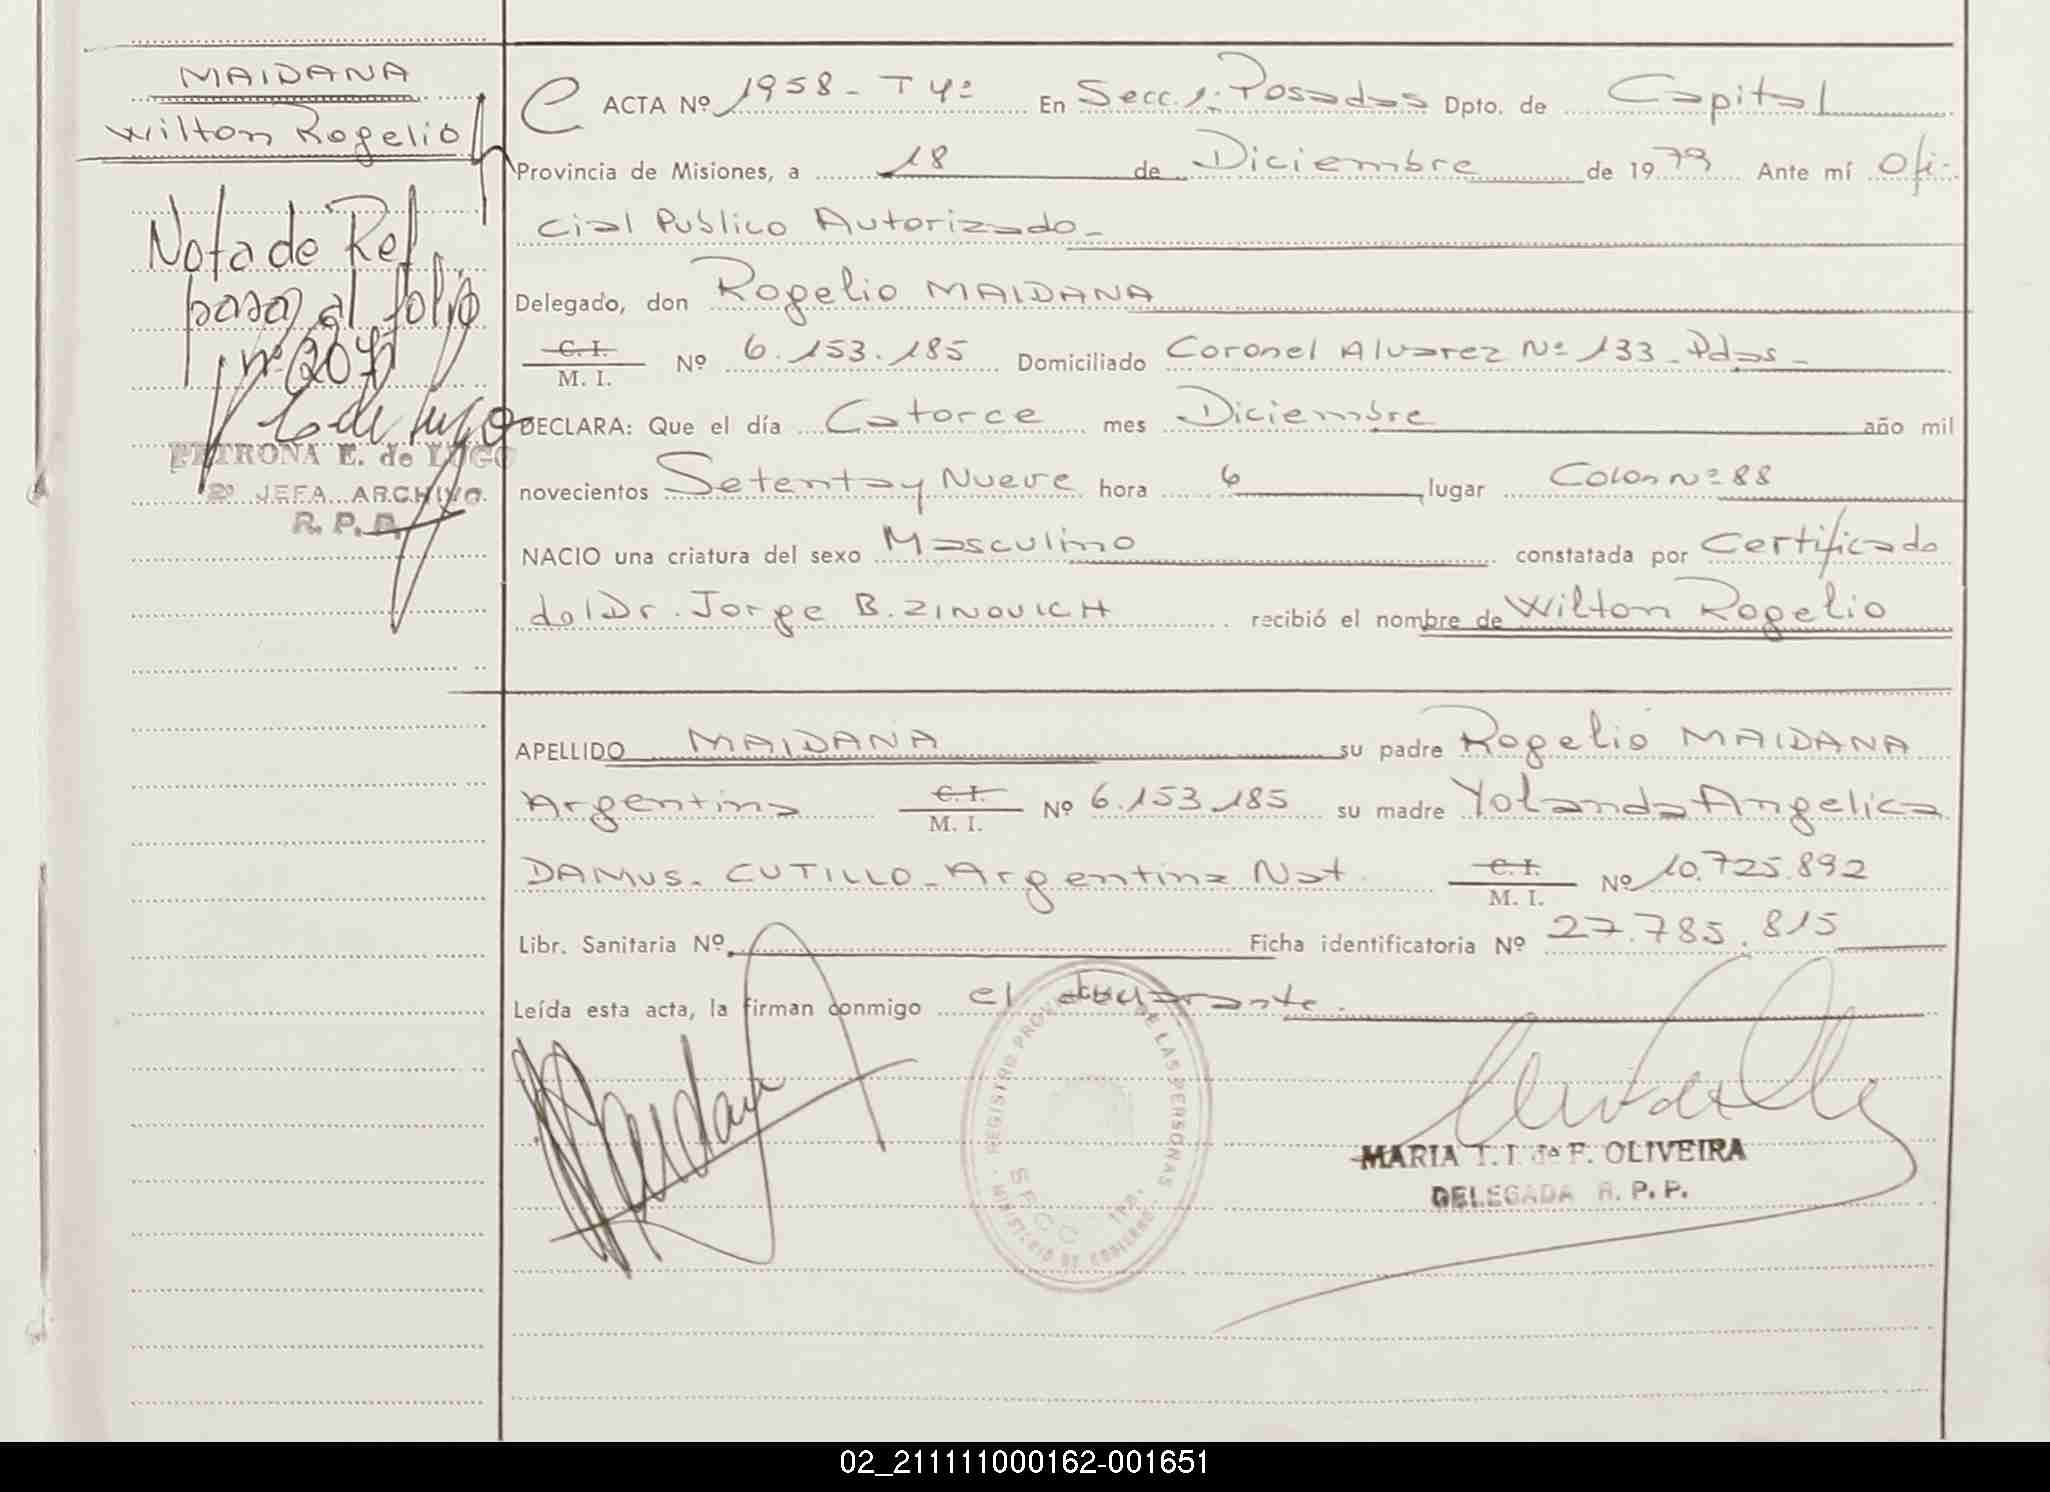 MAIDANA
Wilton Rogelio
Nota de Ref
pasa al folio
nº 207
E de Lugo
PETRONA E. de LUGO
2º JEFA ARCHIVO.
R. P. P.
ACTA Nº 1958 - T 4º En Secc. 1ª Posadas Dpto. de Capital
Provincia de Misiones, a 18 de Diciembre de 1979 Ante mí Ofi-
cial Publico Autorizado -
Delegado, don Rogelio MAIDANA
C. I.
M. I. Nº 6.153.185 Domiciliado Coronel Alvarez Nº 133 - Pdas -
DECLARA: Que el día Catorce mes Diciembre año mil
novecientos Setenta y Nueve hora 6 lugar Colon Nº 88
NACIO una criatura del sexo Masculino constatada por Certificado
del Dr. Jorge B. ZINOVICH recibió el nombre de Wilton Rogelio
APELLIDO MAIDANA su padre Rogelio MAIDANA
Argentino C. I.
M. I. Nº 6.153.185 su madre Yolanda Angelica
DAMUS - CUTILLO - Argentina Nat. C. I.
M. I. Nº 10.725.892
Libr. Sanitaria Nº Ficha identificatoria Nº 27.785.815
Leída esta acta, la firman conmigo el declarante.
Maidana
REGISTRO PROVINCIAL DE LAS PERSONAS
SECC. 1RA.
MINISTERIO DE GOBIERNO
MARIA T. I. de F. OLIVEIRA
DELEGADA R. P. P.
02_211111000162-001651